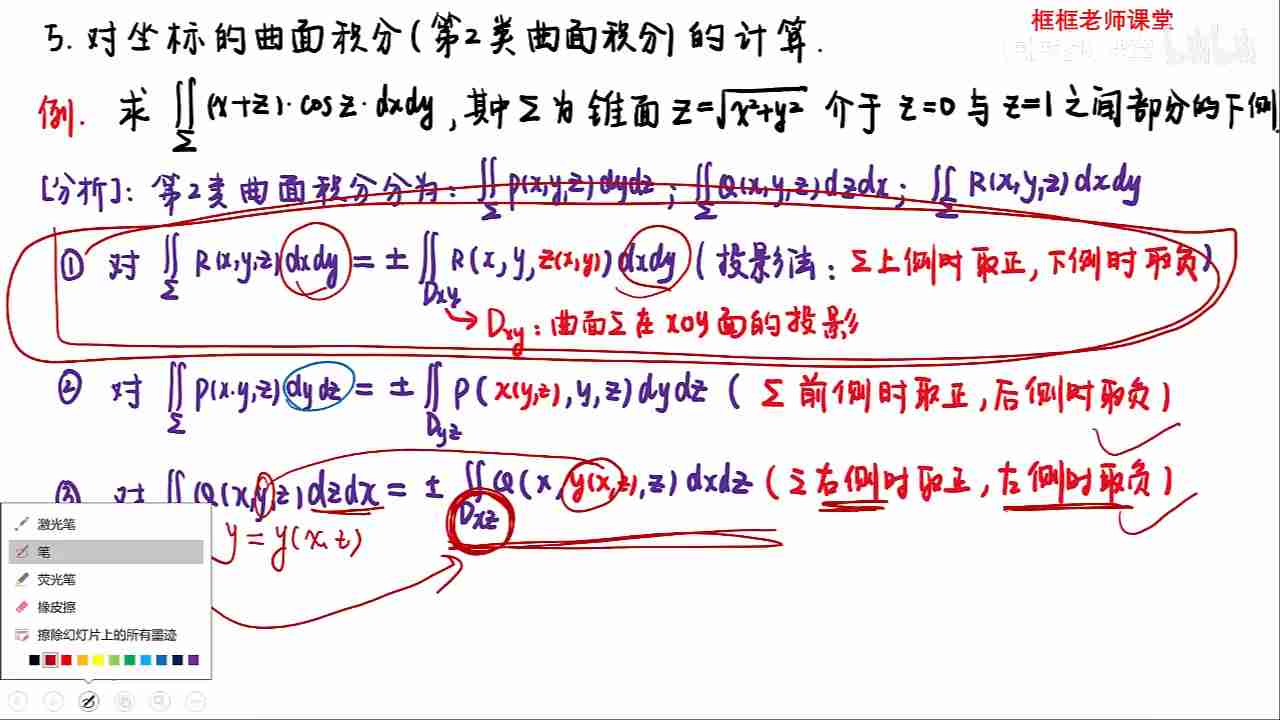 框框老师课堂
5. 对坐标的曲面积分(第2类曲面积分)的计算.
例. 求 ∬_Σ (x+z)·cosz·dxdy, 其中Σ为锥面 z=√(x²+y²) 介于 z=0 与 z=1 之间部分的下侧
[分析]: 第2类曲面积分分为: ∬_Σ P(x,y,z)dydz; ∬_Σ Q(x,y,z)dzdx; ∬_Σ R(x,y,z)dxdy
① 对 ∬_Σ R(x,y,z)dxdy = ± ∬_Dxy R(x,y,z(x,y))dxdy (投影法: Σ上侧时取正,下侧时取负)
Dxy: 曲面Σ在xoy面的投影
② 对 ∬_Σ P(x.y,z)dydz = ± ∬_Dyz P(x(y,z),y,z)dydz ( Σ前侧时取正,后侧时取负)
③ 对 ∬ Q(x,y,z)dzdx = ± ∬_Dxz Q(x,y(x,z),z)dxdz (Σ右侧时取正,左侧时取负)
y=y(x,z)
激光笔
笔
荧光笔
橡皮擦
擦除幻灯片上的所有墨迹